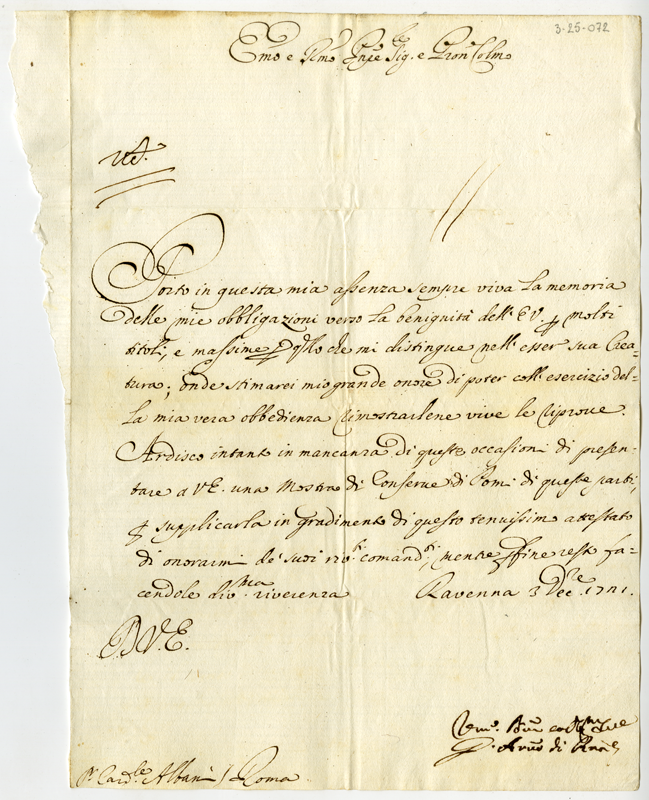 3-25-072
Emo e Rmo Sig.e e Pron Colmo
Porto in questa mia assenza sempre viva la memoria
delle mie obbligazioni verso la benignità dell'EV. p molti
titoli, e massime p qllo che mi distingue nell'esser sua Crea=
tura; onde stimarei mio grande onore di poter coll'esercizio del=
la mia vera obbedienza rimostrarlene vive le riprove.
Ardisco intanto in mancanza di queste occasioni di presen=
tare a VE. una Mostra di Conserve di Pomi di queste parti,
p supplicarla in gradimento di questo tenuissimo attestato
di onorarmi de' suoi riv.i comand.i, mentre p fine resto fa=
cendole div.ma riverenza Ravenna 3 Dec.re 1721.
D V.E.
Sr Card.le Albani / Roma